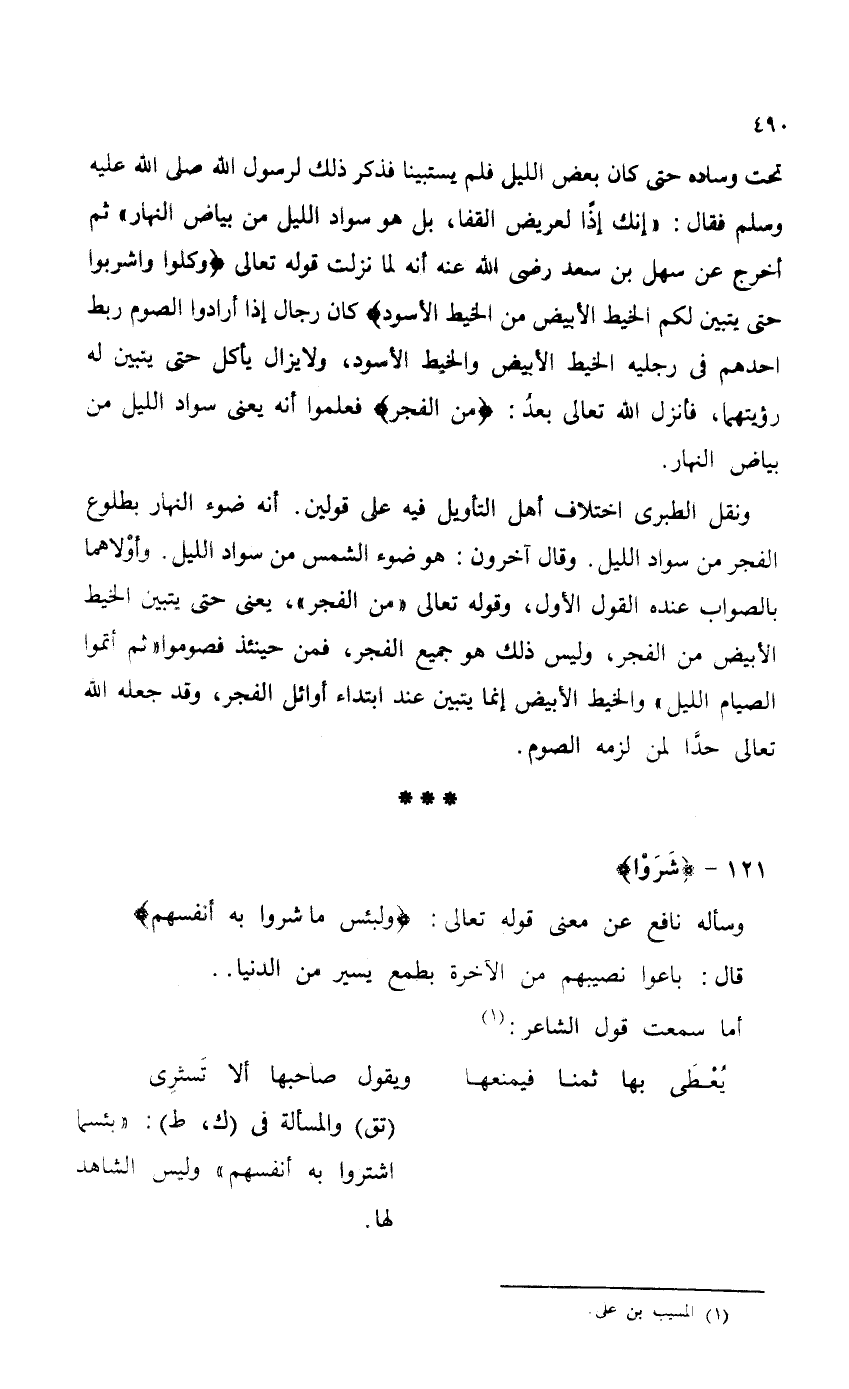 ٤٩٠
تحت وساده حتى كان بعض الليل فلم يستبينا فذكر ذلك لرسول الله صلى الله عليه
وسلم فقال : «إنك إذًا لعريض القفا، بل هو سواد الليل من بياض النهار» ثم
أخرج عن سهل بن سعد رضى الله عنه أنه لما نزلت قوله تعالى ﴿وكلوا واشربوا
حتى يتبين لكم الخيط الأبيض من الخيط الأسود﴾ كان رجال إذا أرادوا الصوم ربط
احدهم فى رجليه الخيط الأبيض والخيط الأسود، ولايزال يأكل حتى يتبين له
رؤيتهما، فأنزل الله تعالى بعدُ : ﴿من الفجر﴾ فعلموا أنه يعنى سواد الليل من
بياض النهار.
ونقل الطبرى اختلاف أهل التأويل فيه على قولين. أنه ضوء النهار بطلوع
الفجر من سواد الليل. وقال آخرون : هو ضوء الشمس من سواد الليل. وأوْلاهما
بالصواب عنده القول الأول، وقوله تعالى «من الفجر»، يعنى حتى يتبين الخيط
الأبيض من الفجر، وليس ذلك هو جميع الفجر، فمن حينئذ فصوموا«ثم أتموا
الصيام الليل» والخيط الأبيض إنما يتبين عند ابتداء أوائل الفجر، وقد جعله الله
تعالى حدَّا لمن لزمه الصوم.
***
١٢١ - ﴿شَرَوْا﴾
وسأله نافع عن معنى قوله تعالى : ﴿ولبئس ماشروا به أنفسهم﴾
قال : باعوا نصيبهم من الآخرة بطمع يسير من الدنيا..
أما سمعت قول الشاعر :(١)
يُعْطَى بها ثمنا فيمنعها ويقول صاحبها ألا تَستْرِى
(تق) والمسألة فى (ك، ط) : «بئسما
اشتروا به أنفسهم» وليس الشاهد
لها.
(١) المسيب بن على.